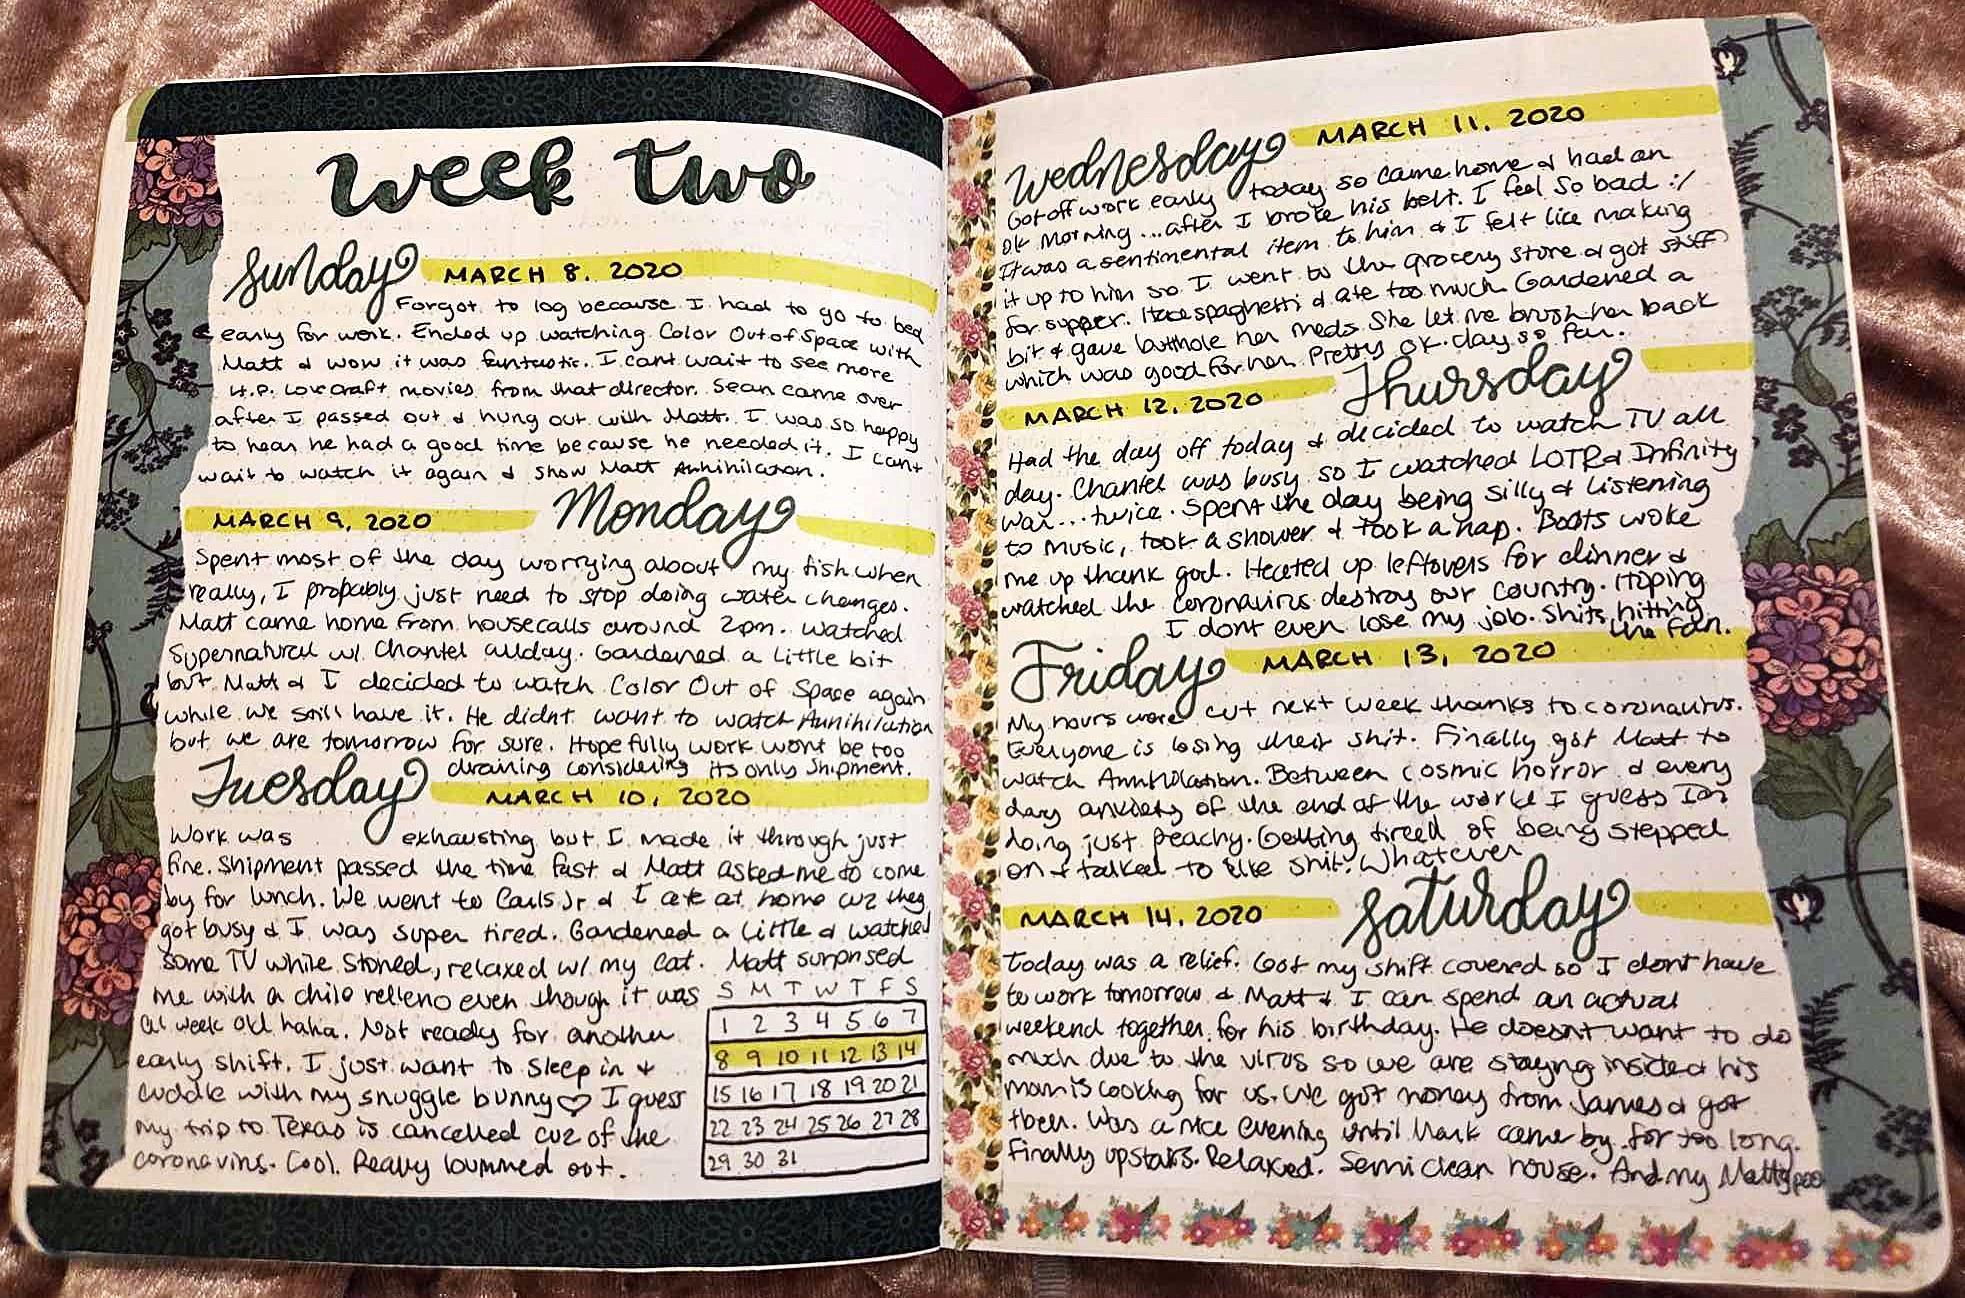 week two
Sunday MARCH 8, 2020
Forgot to log because I had to go to bed
early for work. Ended up watching Color Out of Space with
Matt & wow it was funtastic. I cant wait to see more
H.P. Lovecraft movies from that director. Sean came over
after I passed out & hung out with Matt. I was so happy
to hear he had a good time because he needed it. I cant
wait to watch it again & show Matt Annihilation.
MARCH 9, 2020 Monday
Spent most of the day worrying about my fish when
really, I probably just need to stop doing water changes.
Matt came home from housecalls around 2pm. Watched
Supernatural w/ Chantel allday. Gardened a little bit
but Matt & I decided to watch Color Out of Space again
while we still have it. He didnt want to watch Annihilation
but we are tomorrow for sure. Hopefully work wont be too
draining considering its only shipment.
Tuesday MARCH 10, 2020
Work was exhausting but I made it through just
fine. Shipment passed the time fast & Matt asked me to come
by for lunch. We went to Carls Jr & I ate at home cuz they
got busy & I was super tired. Gardened a little & watched
some TV while stoned, relaxed w/ my cat. Matt surprised
me with a chile relleno even though it was
a week old haha. Not ready for another
early shift. I just want to sleep in &
cuddle with my snuggle bunny♡ I guess
my trip to Texas is cancelled cuz of the
coronavirus. Cool. Really bummed out.
S M T W T F S
1 2 3 4 5 6 7
8 9 10 11 12 13 14
15 16 17 18 19 20 21
22 23 24 25 26 27 28
29 30 31
Wednesday MARCH 11, 2020
Got off work early today so came home & had an
ok morning...after I broke his belt. I feel so bad :/
It was a sentimental item to him & I felt like making
it up to him so I went to the grocery store & got stuff
for supper. spaghetti & ate too much Gardened a
bit & gave butthole her meds. She let me brush her back
which was good for her. Pretty ok day so far.
MARCH 12, 2020 Thursday
Had the day off today & decided to watch TV all
day. Chantel was busy so I watched LOTR & Infinity
War...twice. Spent the day being silly & listening
to music, took a shower & took a nap. Boots woke
me up thank god. Heated up leftovers for dinner &
watched the coronavirus destroy our country. Hoping
I dont even lose my job. Shits hitting
the fan.
Friday MARCH 13, 2020
My hours were cut next week thanks to coronavirus.
Everyone is losing their shit. Finally got Matt to
watch Annihilation. Between cosmic horror & every
day anxiety of the end of the world I guess Im
doing just peachy. Getting tired of being stepped
on & talked to like shit. Whatever
MARCH 14, 2020 Saturday
Today was a relief. Got my shift covered so I dont have
to work tomorrow & Matt & I can spend an actual
weekend together for his birthday. He doesnt want to do
much due to the virus so we are staying inside & his
mom is cooking for us. We got money from James & got
Was a nice evening until Mark came by for too long.
Finally upstairs. Relaxed. Semi clean house. And my Mattypoo